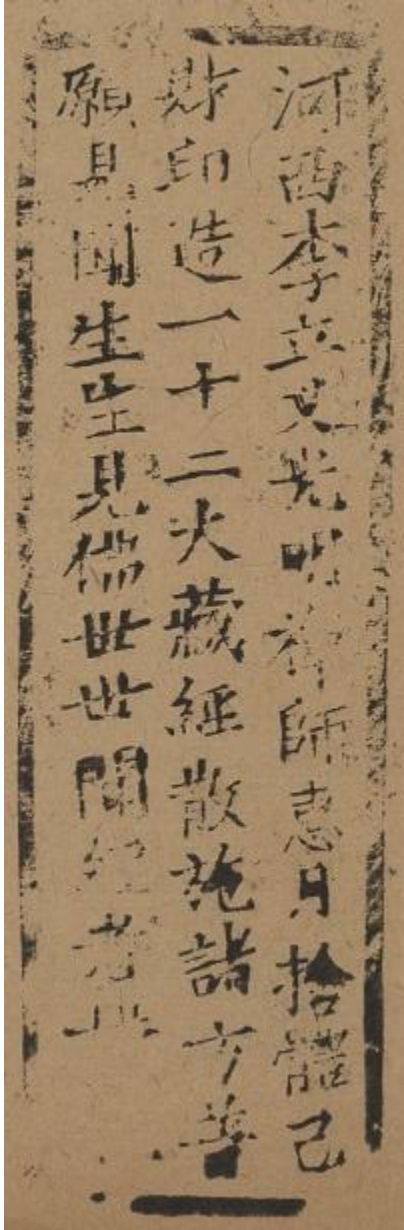 河西李立义光明禅師惠月捨體己
財印造一十二大藏經散施諸方普
願見聞生生見佛世世聞經者